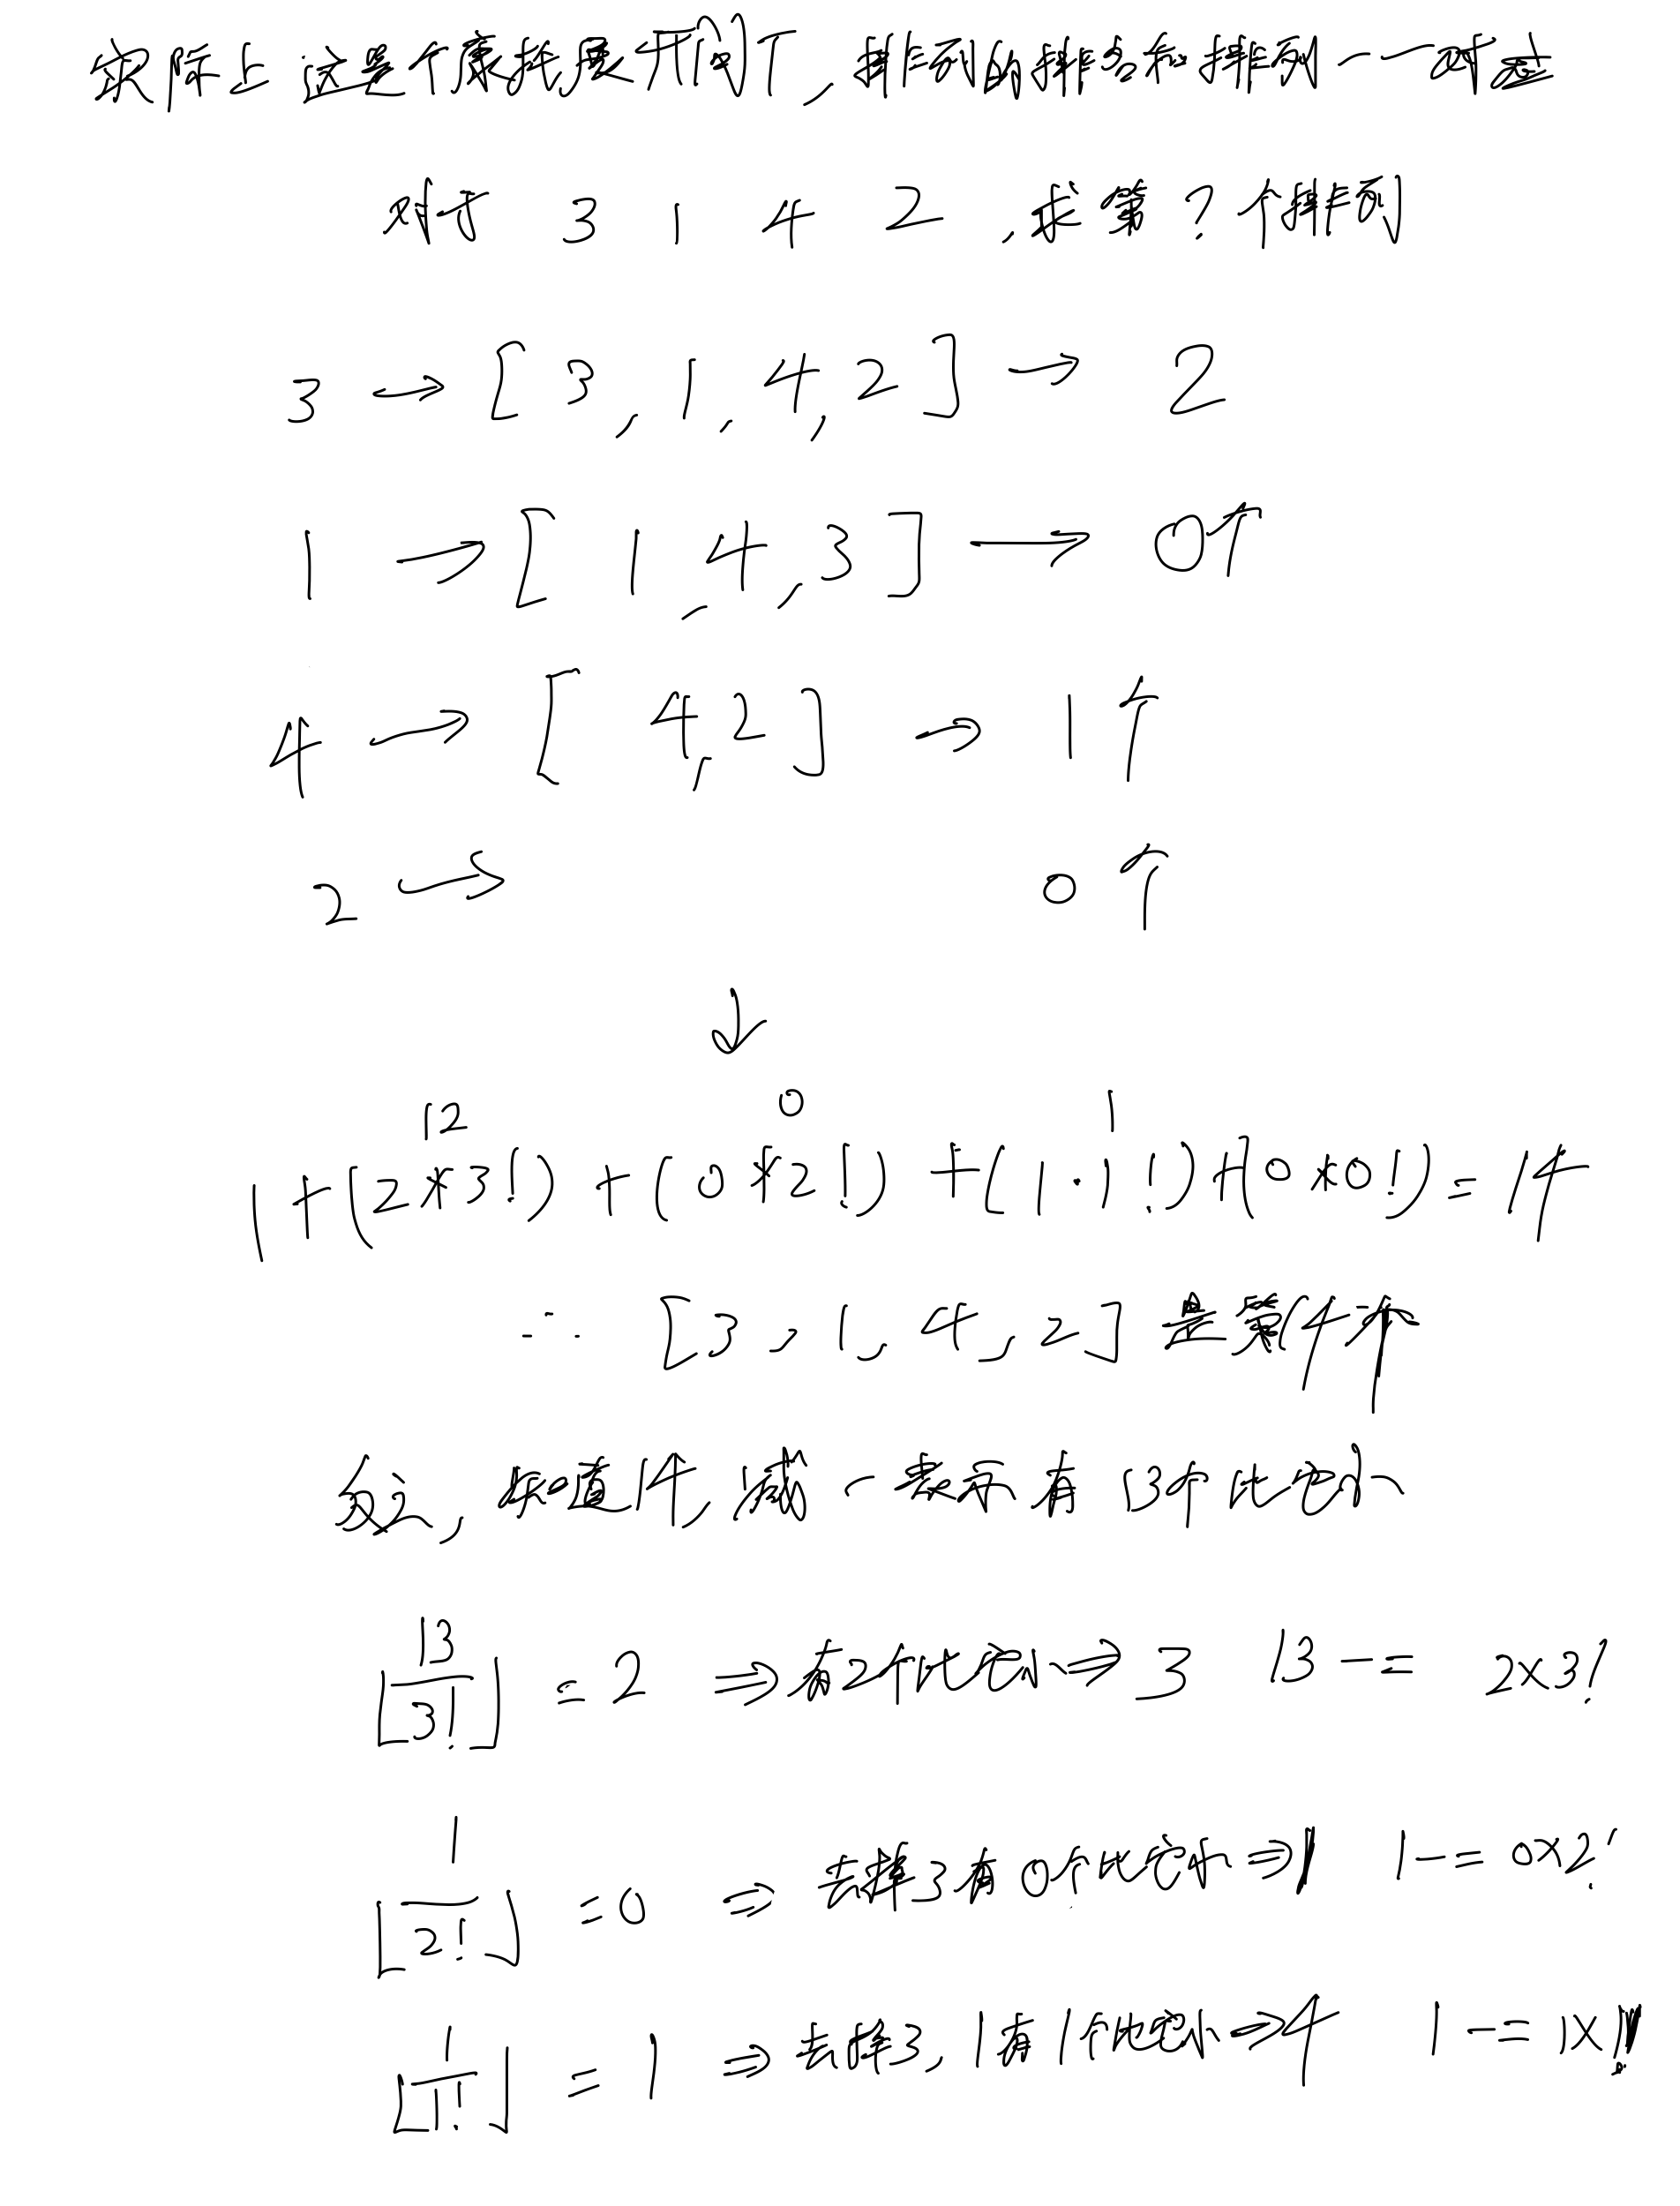 实际上这是个康托展开问题,排列的排名和排列一一对应
对于 3 1 4 2 ,求第?个排列
3 → [3,1,4,2] → 2
1 → [1,4,3] → 0个
4 → [4,2] → 1个
2 → 0个
↓
12 0 1
1+(2*3!)+(0*2!)+(1·1!)+(0*0!)=14
∴ [3,1,4,2]是第14个
反之,知道14,减一表示有13个比它小
⌊13/3!⌋=2 ⇒有2个比它小⇒3 13-= 2×3!
⌊1/2!⌋=0 ⇒去掉3有0个比它小⇒1 1-=0×2!
⌊1/1!⌋=1 ⇒去掉3,1有1个比它小⇒4 1-=1×1!